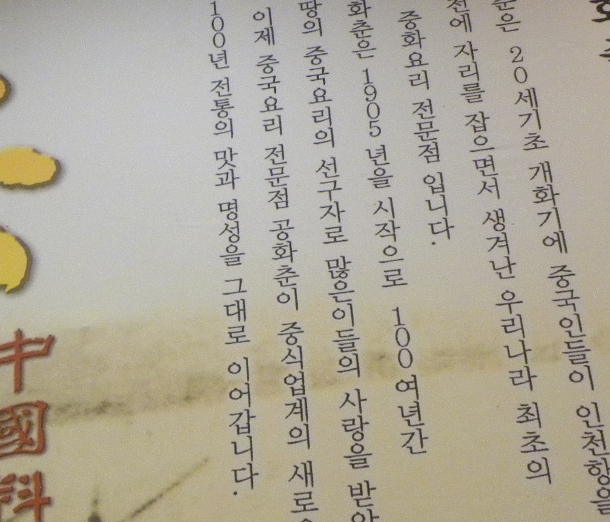 춘은 20세기초 개화기에 중국인들이 인천항을
전에 자리를 잡으면서 생겨난 우리나라 최초의
중화요리 전문점 입니다.
화춘은 1905년을 시작으로 100여년간
땅의 중국요리의 선구자로 많은이들의 사랑을 받
이제 중국요리 전문점 공화춘이 중식업계의 새로
100년 전통의 맛과 명성을 그대로 이어갑니다.
中國料